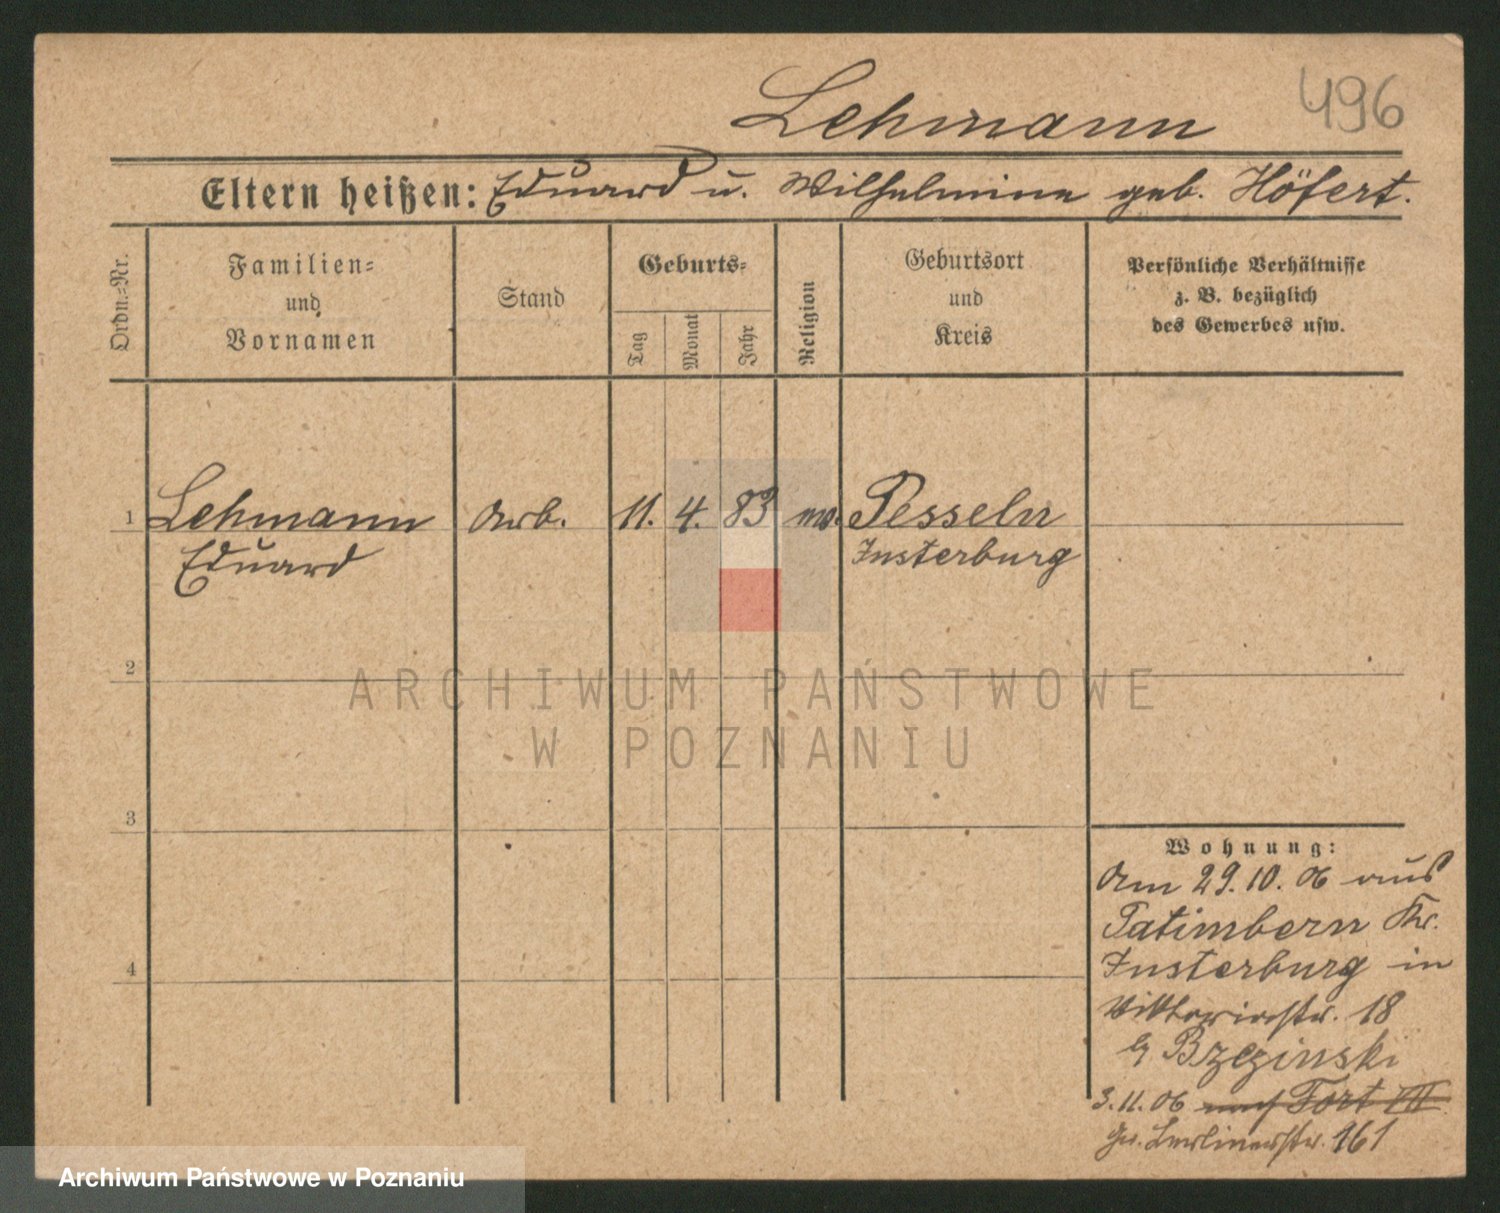 Lehmann 496
Eltern heißen: Eduard u. Wilhelmine geb. Höfert.
Ordn.-Nr.
Familien-
und
Vornamen
Stand
Geburts-
Tag
Monat
Jahr
Religion
Geburtsort
und
Kreis
Persönliche Verhältnisse
z. B. bezüglich
des Gewerbes usw.
1 Lehmann Arb. 11. 4. 83 Pesseln
Eduard Insterburg
2
ARCHIWUM PAŃSTWOWE
W POZNANIU
3
Wohnung:
Am 29.10.06 aus
Tatimbern Kr.
4
Insterburg in
Viktoriastr. 18
Brzezinski
3.11.06 nach Fort VII
Gr. Berlinerstr. 161
Archiwum Państwowe w Poznaniu